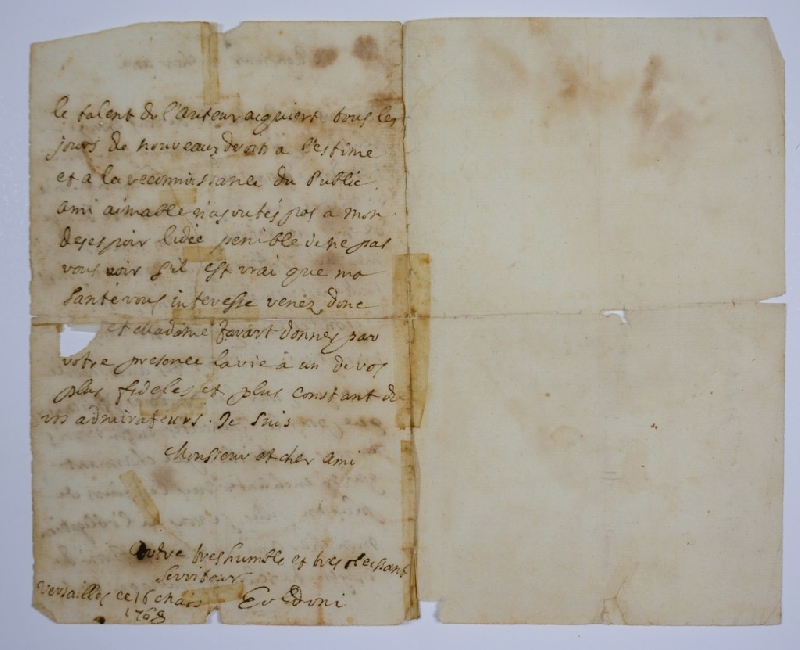 le talent de l'auteur acquiert tous les
jours de nouveaux droits a l'estime
et a la reconnoissance du Public.
ami aimable n'ajoutés pas a mon
desespoir l'idée penible de ne pas
vous voir s'il est vrai que ma
santé vous interesse venez donc
et Madame Favart donner par
votre presence la vie à un de vos
plus fideles et plus constant de
vos admirateurs. Je suis
Monsieur et cher ami
votre tres humble et tres obeissant
serviteur
Versailles ce 16 Mars Goldoni
1768